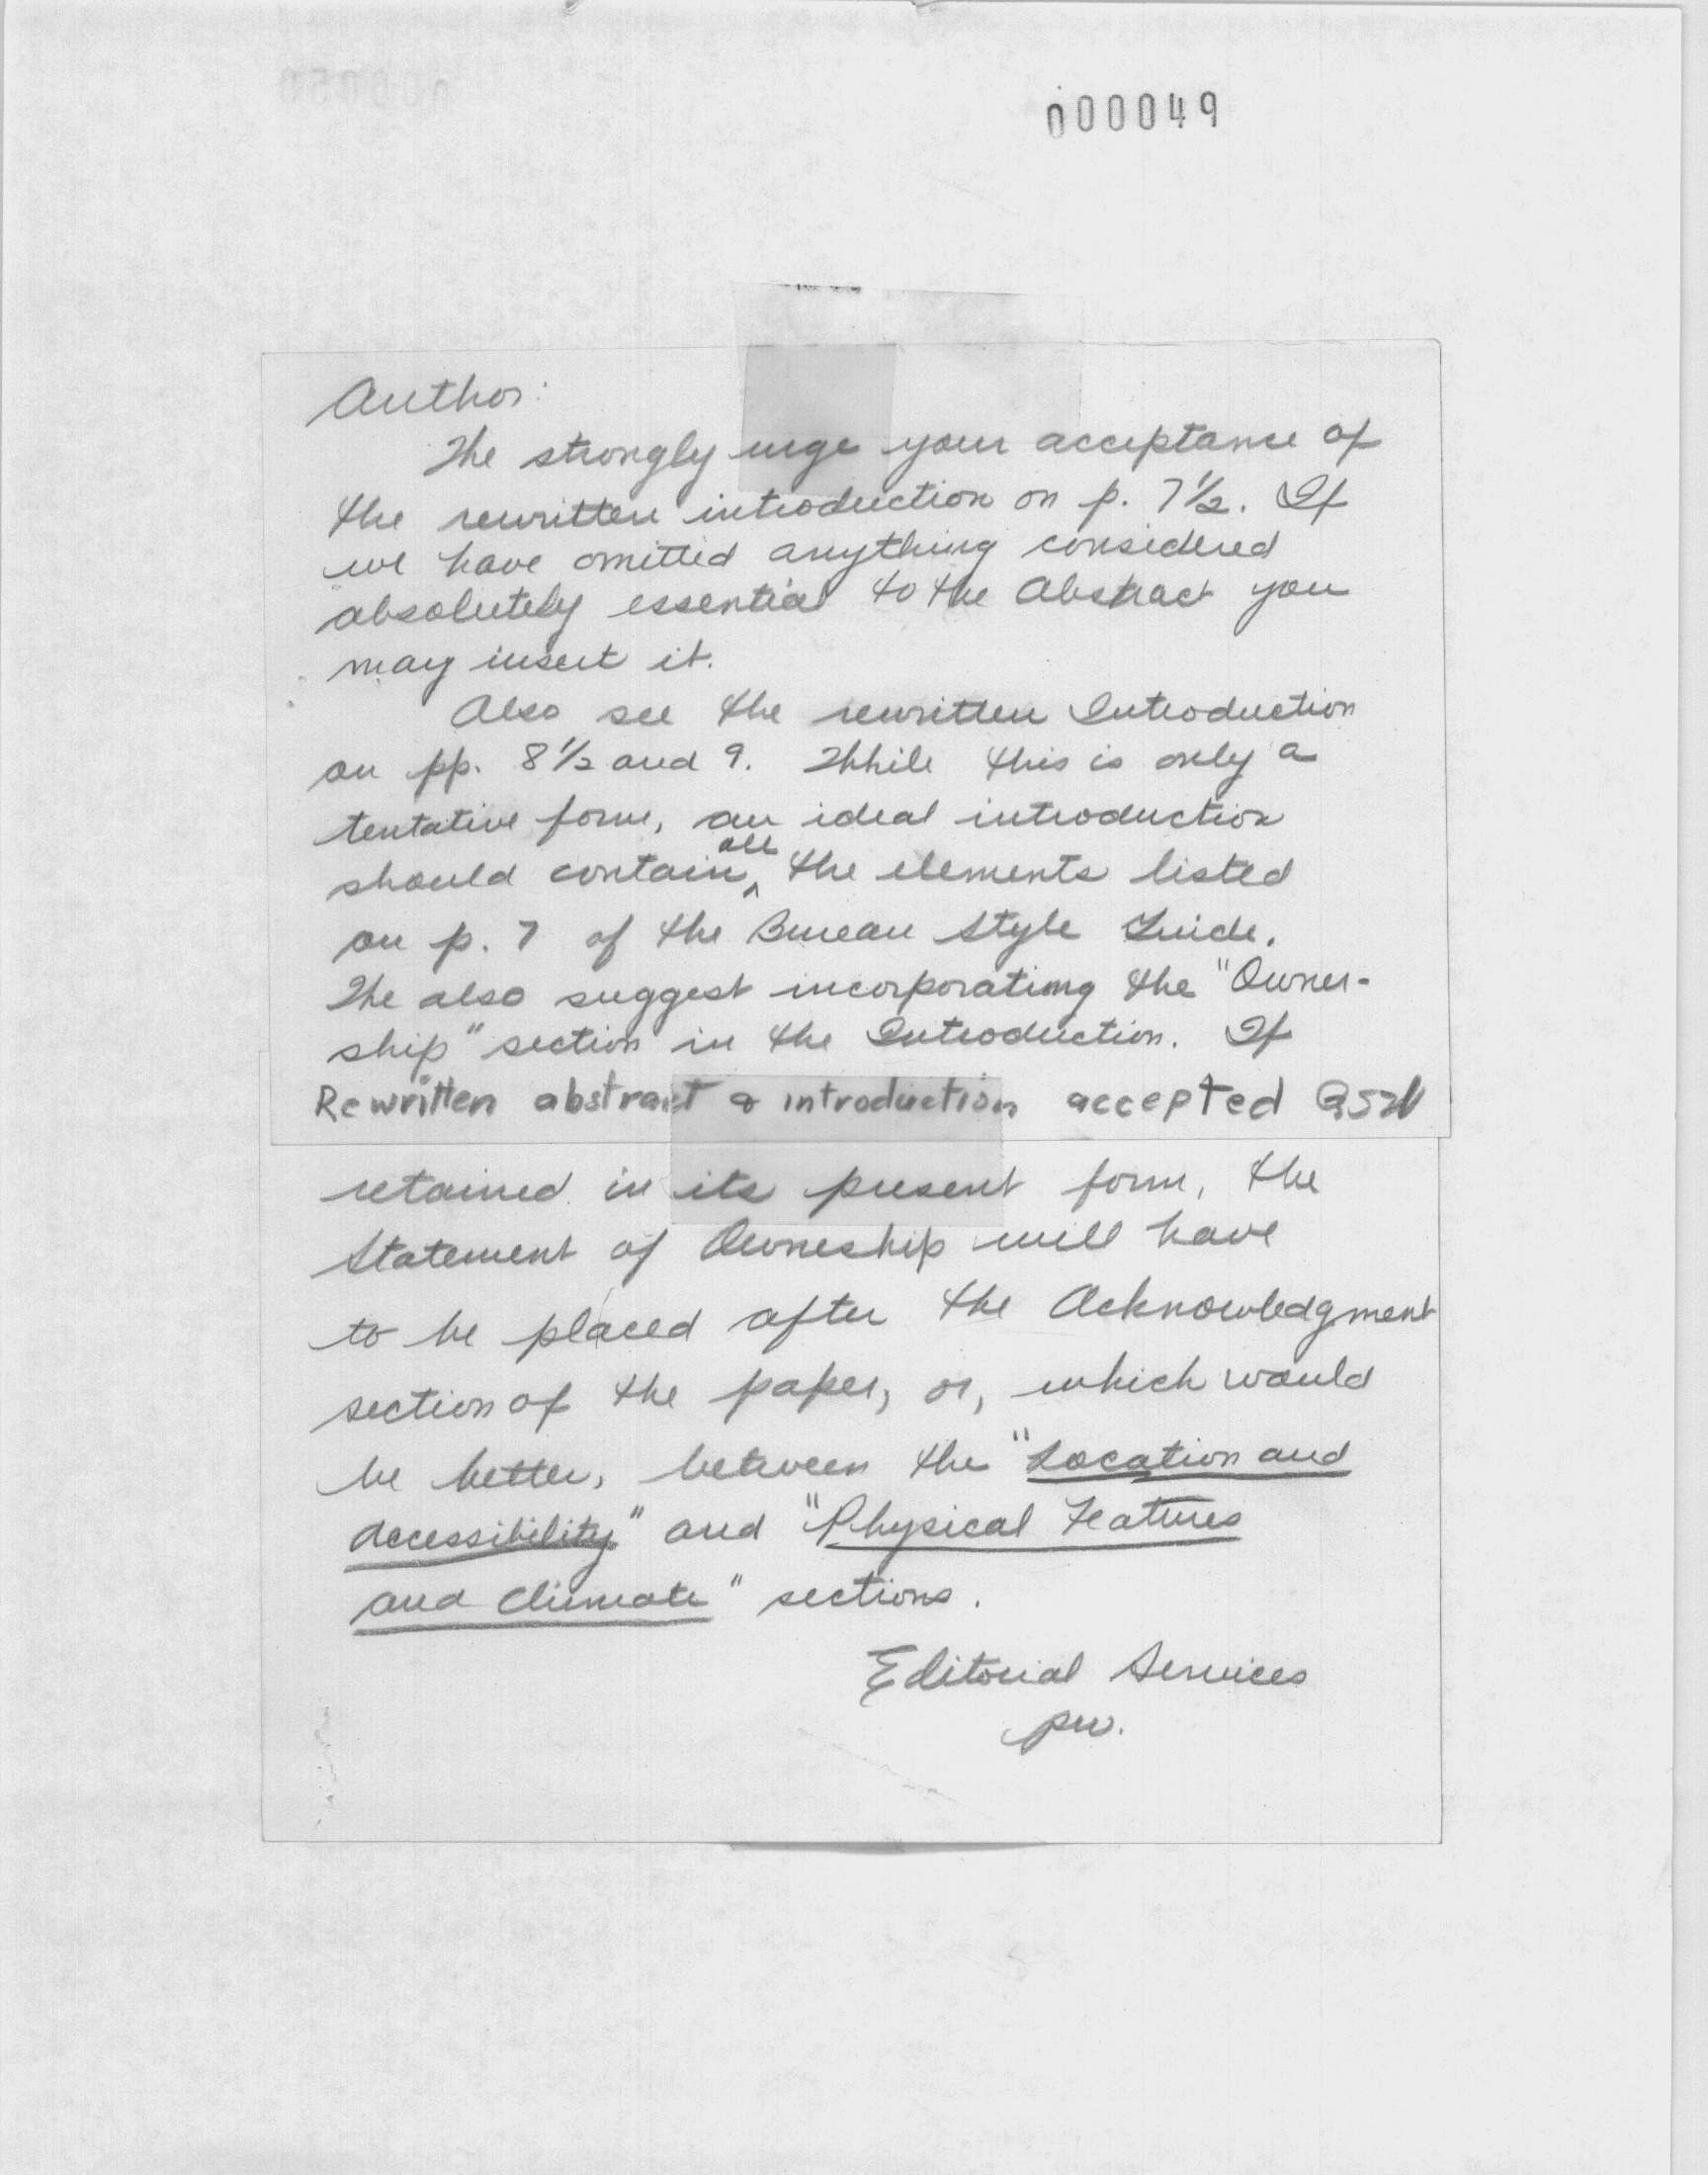 000049
Author:
We strongly urge your acceptance of
the rewritten introduction on p. 7 1/2. If
we have omitted anything considered
absolutely essential to the Abstract you
may insert it.
Also see the rewritten Introduction
on pp. 8 1/2 and 9. While this is only a
tentative form, an ideal introduction
should contain all the elements listed
on p. 7 of the Bureau Style Guide.
We also suggest incorporating the "Owner-
ship" section in the Introduction. If
Rewritten abstract & introduction accepted
retained in its present form, the
Statement of Owneship will have
to be placed after the Acknowledgment
section of the paper, or, which would
be better, between the "Location and
Accessibility" and "Physical Features
and Climate" sections.
Editorial Services
pw.